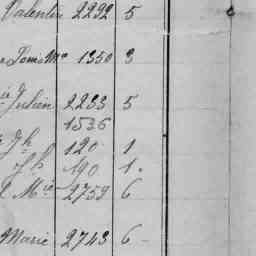 Valentin 2292 5
Louis Me 1350 3
Julien 2233 5
1536
Jh 120 1
Jh 190 1.
Mie 2759 6
Marie 2743 6